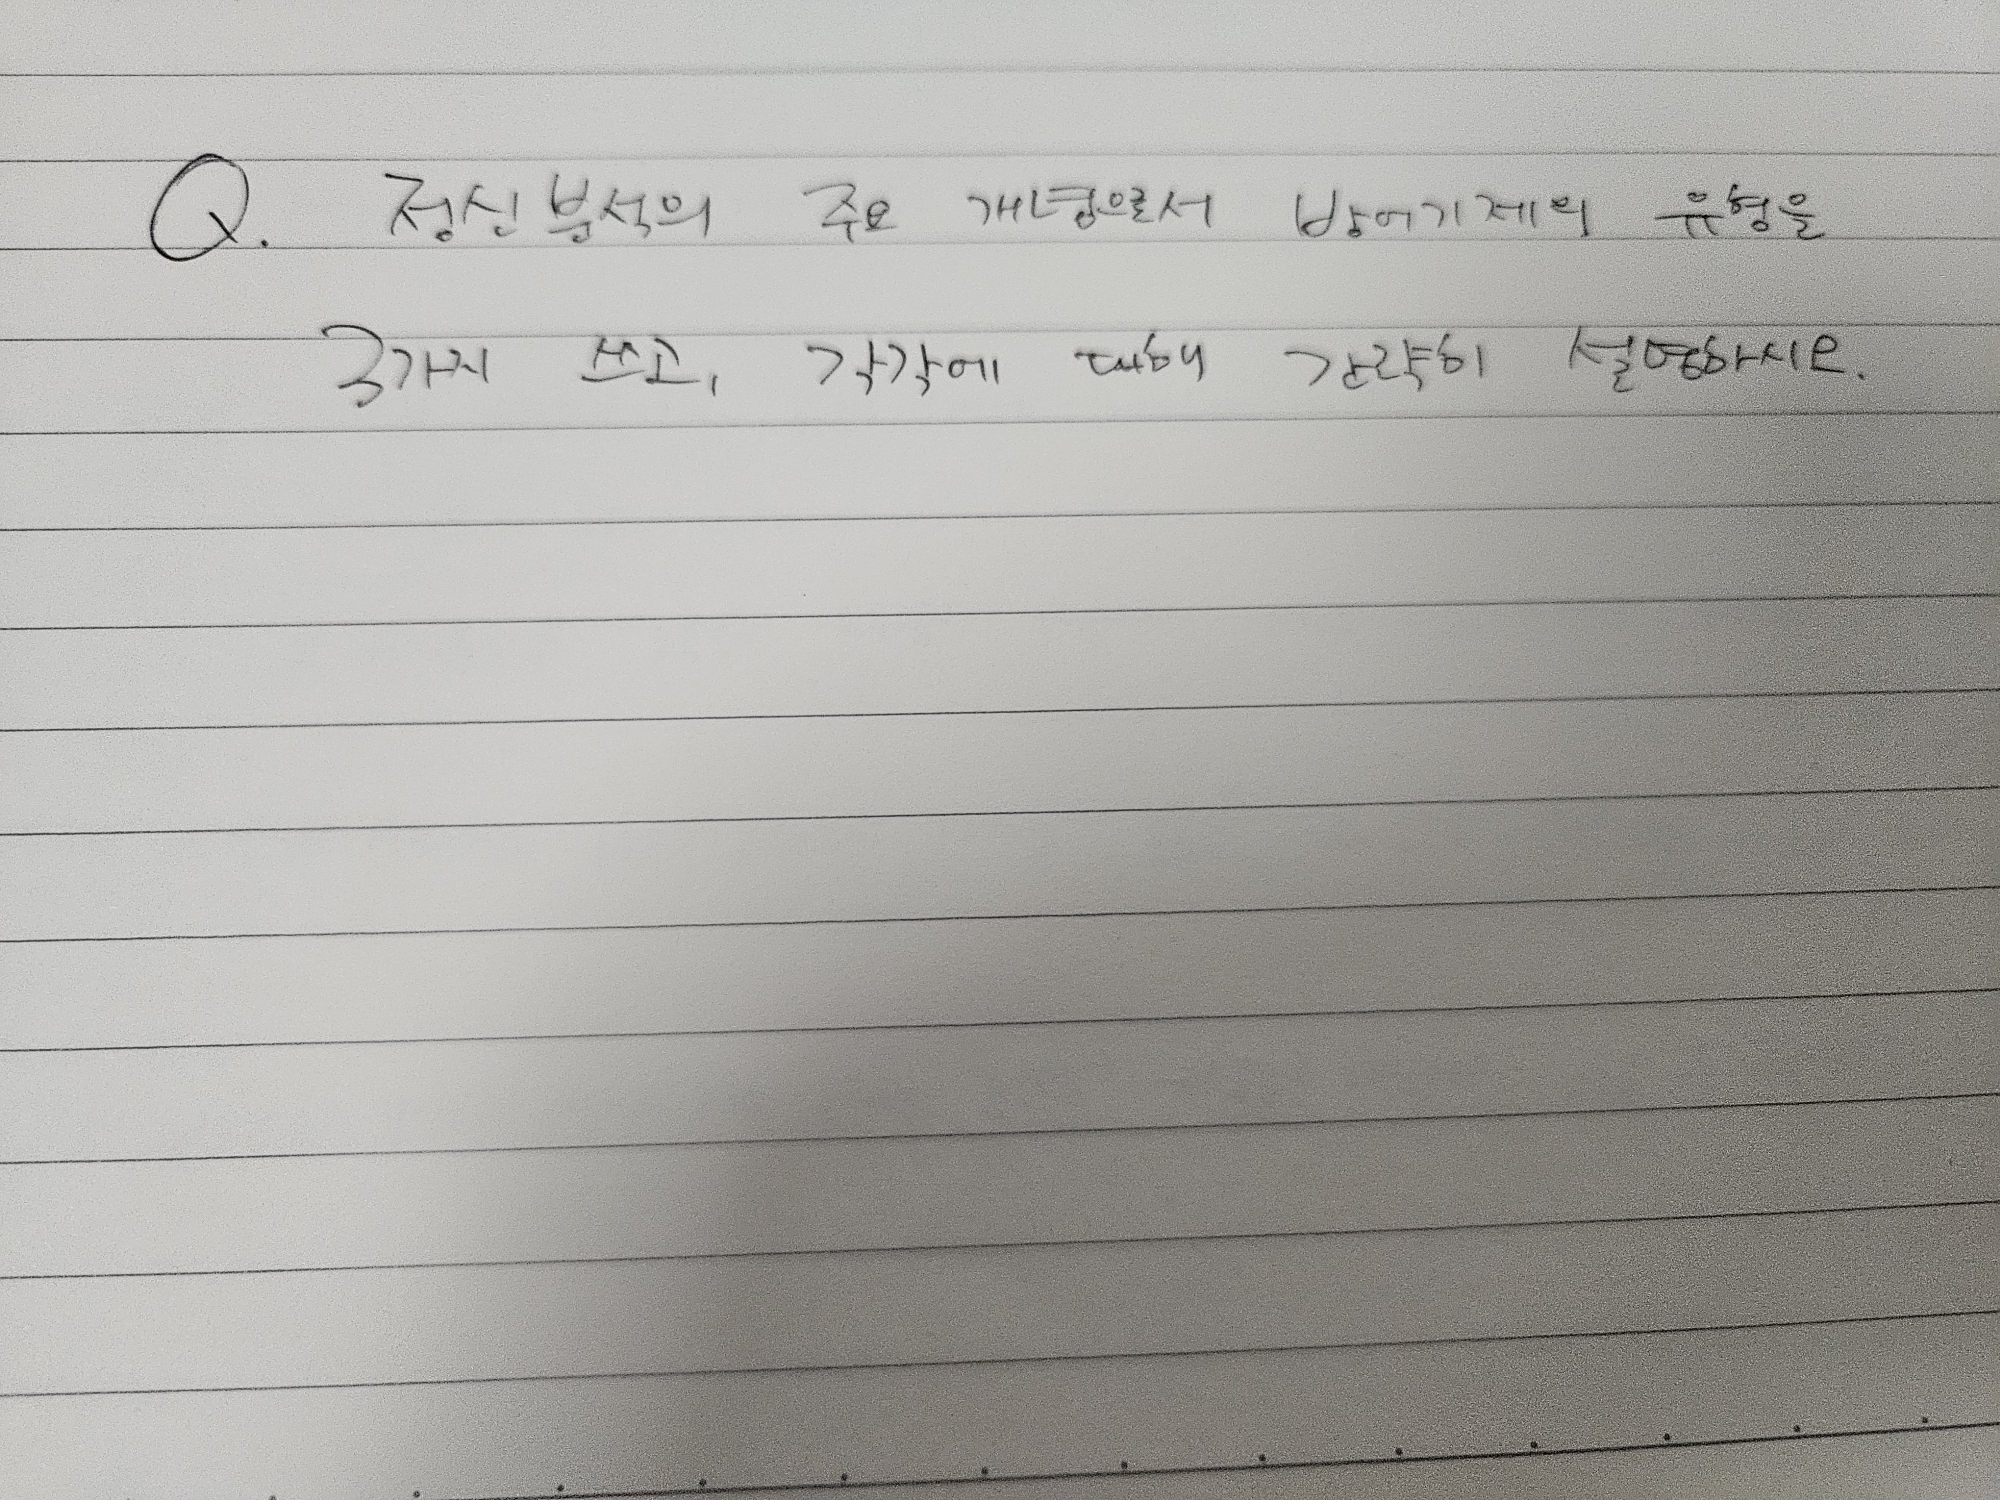 Q. 정신분석의 주요 개념으로서 방어기제의 유형을
3가지 쓰고, 각각에 대해 간략히 설명하시오.